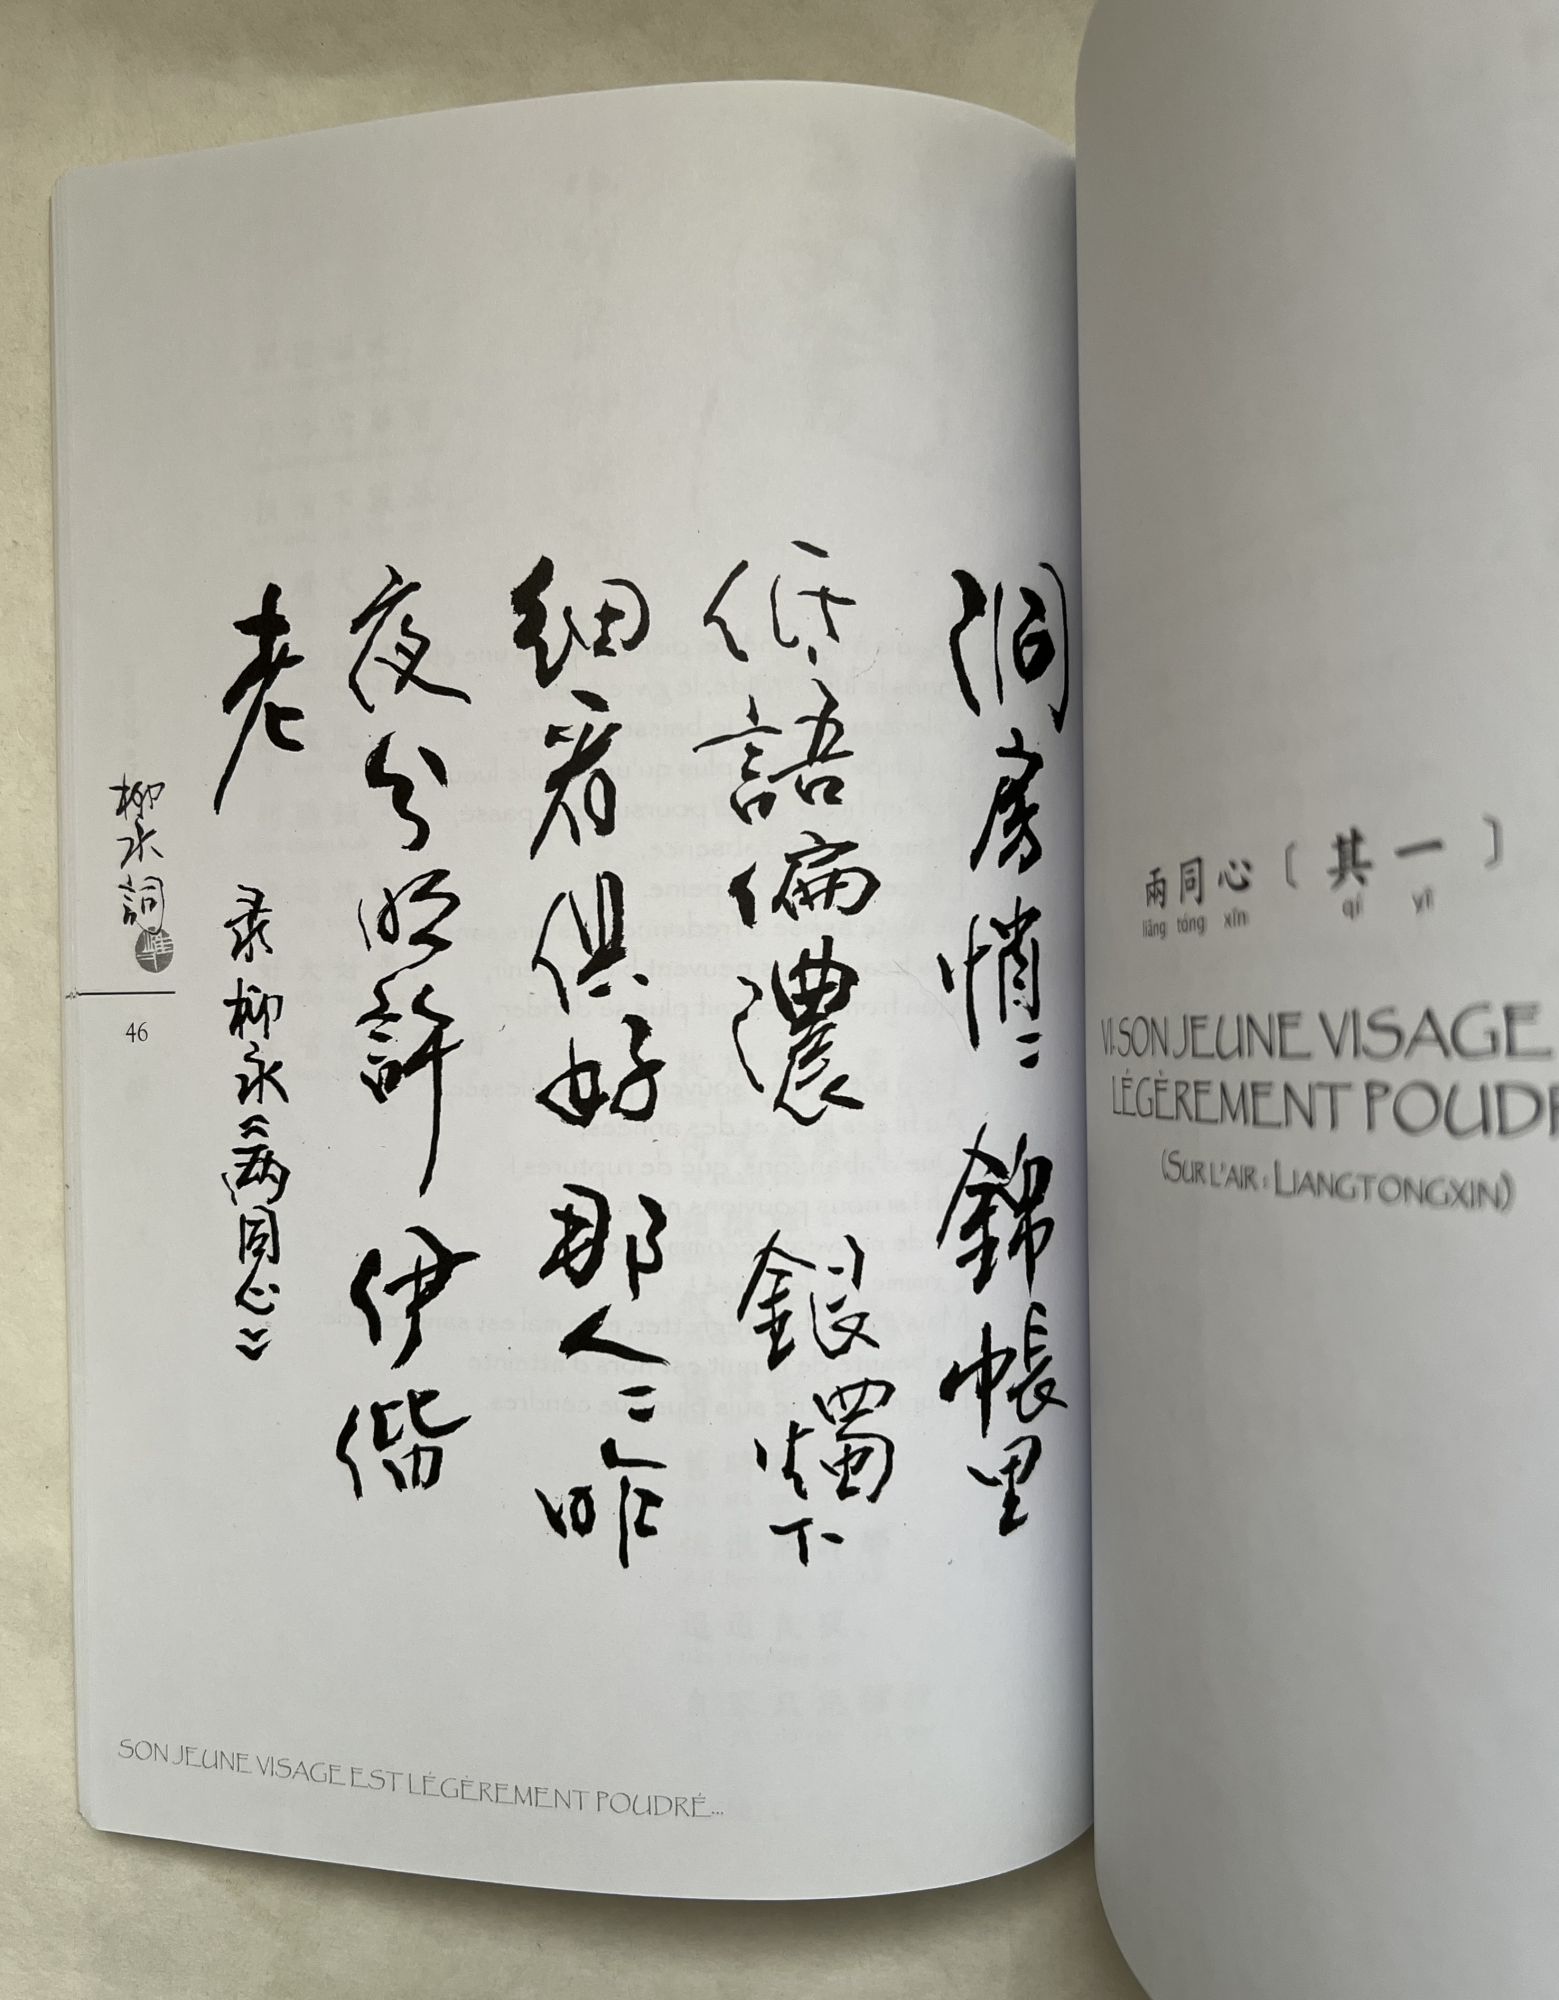 洞房悄〻錦帳里
低語偏濃銀燭下
細看俱好那人〻昨
夜分明許伊偕
老
录柳永《两同心》
柳永詞
46
SON JEUNE VISAGE EST LÉGÈREMENT POUDRÉ...
兩同心〔其一〕
liǎng tóng xīn qí yī
VI. SON JEUNE VISAGE
LÉGÈREMENT POUDR
(SUR L'AIR : LIANGTONGXIN)